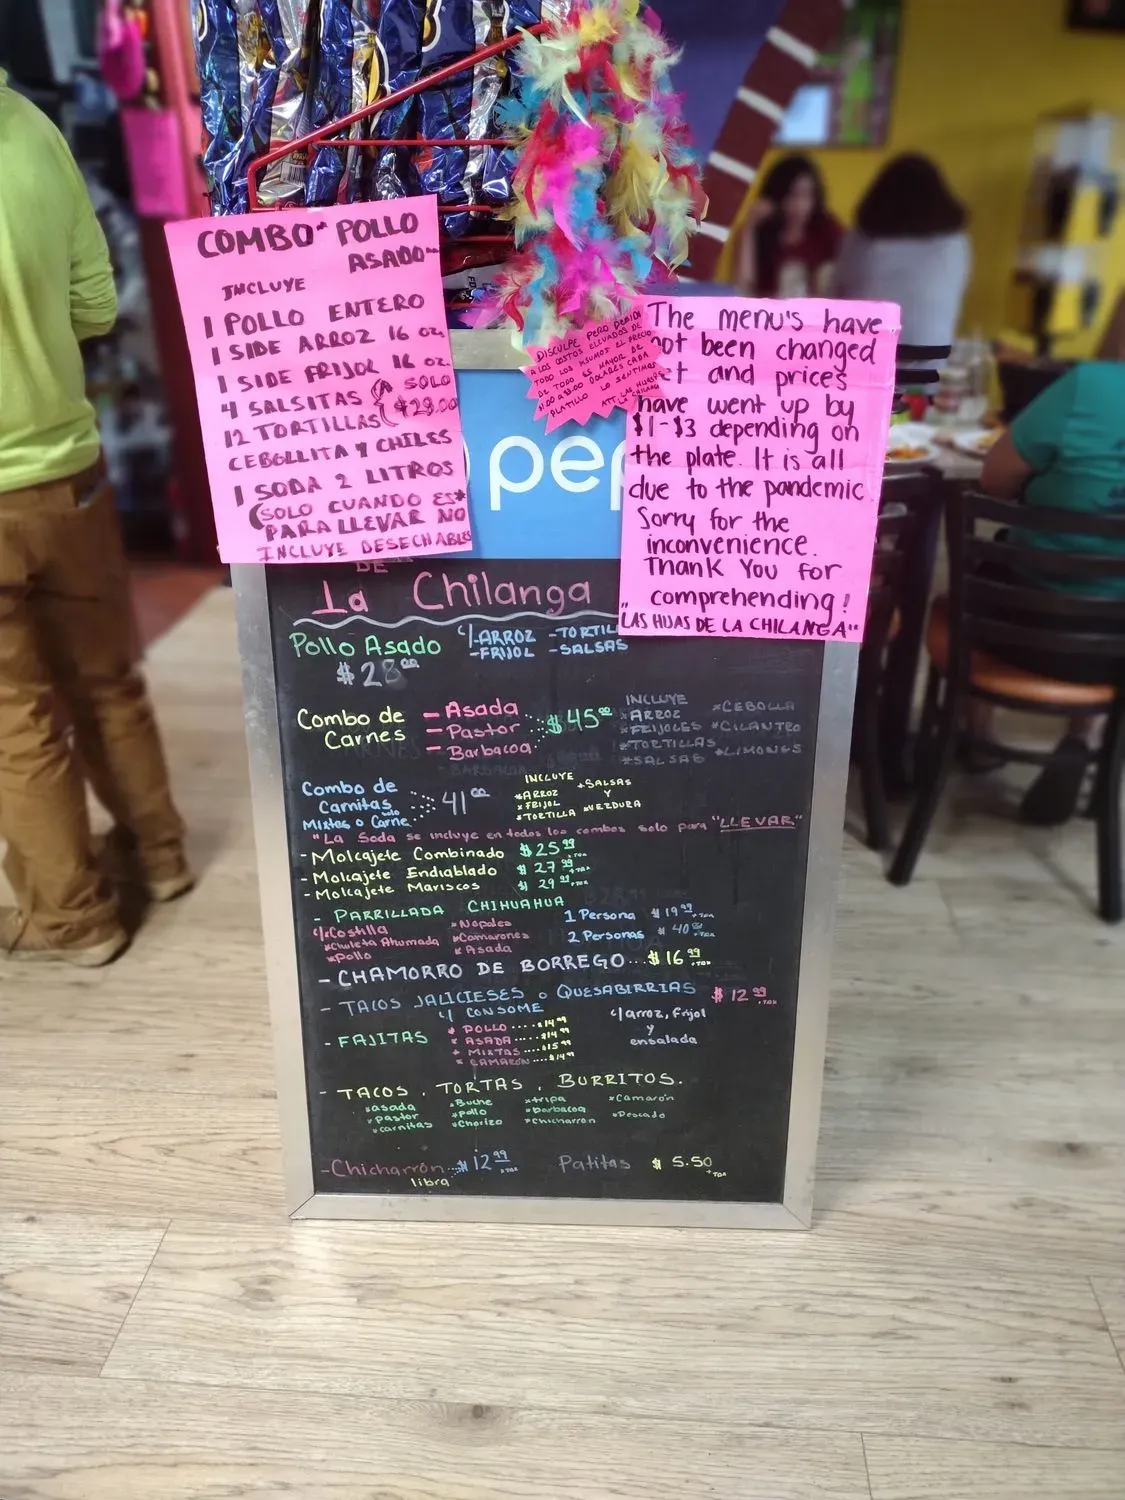 COMBO* POLLO
ASADO
INCLUYE
1 POLLO ENTERO
1 SIDE ARROZ 16 oz.
1 SIDE FRIJOL 16 oz.
4 SALSITAS SOLO
12 TORTILLAS $28.00
CEBOLLITA Y CHILES
1 SODA 2 LITROS
(SOLO CUANDO ES*
PARA LLEVAR NO
INCLUYE DESECHABLES
DISCULPE PERO DEBIDO
A LOS COSTOS ELEVADOS DE
TODO LOS INSUMOS EL PRECIO
DE TODO ES MAYOR DE
$1.00 A $3.00 DOLARES CADA
PLATILLO LO SENTIMOS
The menu's have
not been changed
and prices
have went up by
$1-$3 depending on
the plate. It is all
due to the pandemic.
Sorry for the
inconvenience.
Thank You for
comprehending!
"LAS HIJAS DE LA CHILANGA"
pep
DE
La Chilanga
Pollo Asado c/-ARROZ -TORTIL
-FRIJOL -SALSAS
$28.00
Combo de Carnes - Asada - Pastor - Barbacoa $45.00
INCLUYE
*ARROZ *CEBOLLA
*FRIJOLES *CILANTRO
*TORTILLAS *LIMONES
*SALSAS
Combo de Carnitas 41.00
Mixtas o solo Carne
INCLUYE +SALSAS
*ARROZ Y
*FRIJOL *VERDURA
*TORTILLA
"La Soda se incluye en todos los combos solo para "LLEVAR"
- Molcajete Combinado $25.99 +TAX
- Molcajete Endiablado $27.99 +TAX
- Molcajete Mariscos $29.99 +TAX
- PARRILLADA CHIHUAHUA
c/*Costilla *Nopales 1 Persona $19.99 +TAX
*Chuleta Ahumada *Camarones 2 Personas $40.00 +TAX
*Pollo *Asada
- CHAMORRO DE BORREGO... $16.99 +TAX
- TACOS JALICIESES o QUESABIRRIAS $12.99 +TAX
c/ CONSOME
- FAJITAS * POLLO....$14.99 c/arroz, frijol
* ASADA....$14.99 y
+ MIXTAS....$15.99 ensalada
* CAMARÓN...$14.99
- TACOS, TORTAS, BURRITOS.
*asada *Buche *tripa *Camarón
*pastor *pollo *barbacoa *Pescado
*carnitas *Chorizo *Chicharrón
-Chicharrón... $12.99 +TAX Patitas $5.50 +TAX
libra